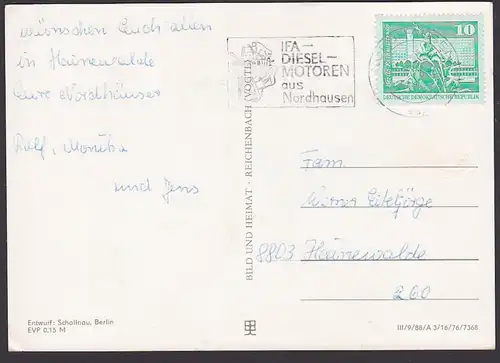 wünschen Euch allen
in Hainewalde
Eure Nordhäuser
Rolf, Monika
und Jens
Entwurf: Schallnau, Berlin
EVP 0,15 M
BILD UND HEIMAT · REICHENBACH (VOGTL)
IFA –
DIESEL–
MOTOREN
aus
Nordhausen
10
DEUTSCHE DEMOKRATISCHE REPUBLIK
Fam.
8803 Hainewalde
260
III/9/88/A 3/16/76/7368